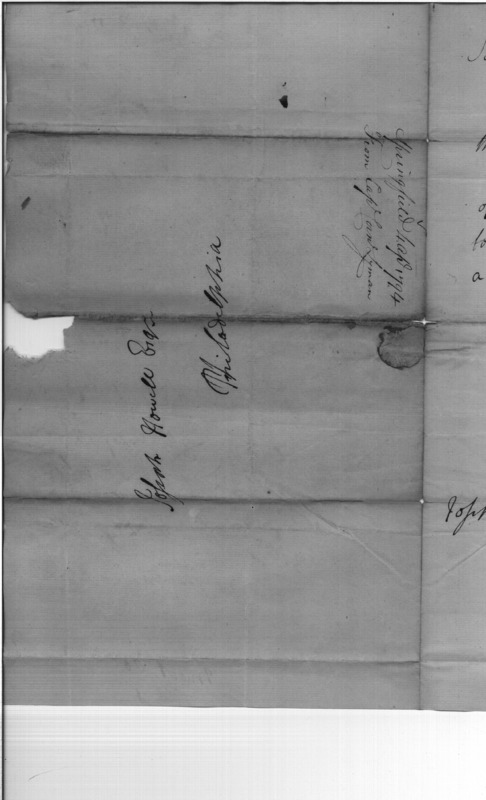 Joseph Howell Esqr
Philadelphia
Springfield Sept 1794
From Capt
Jos